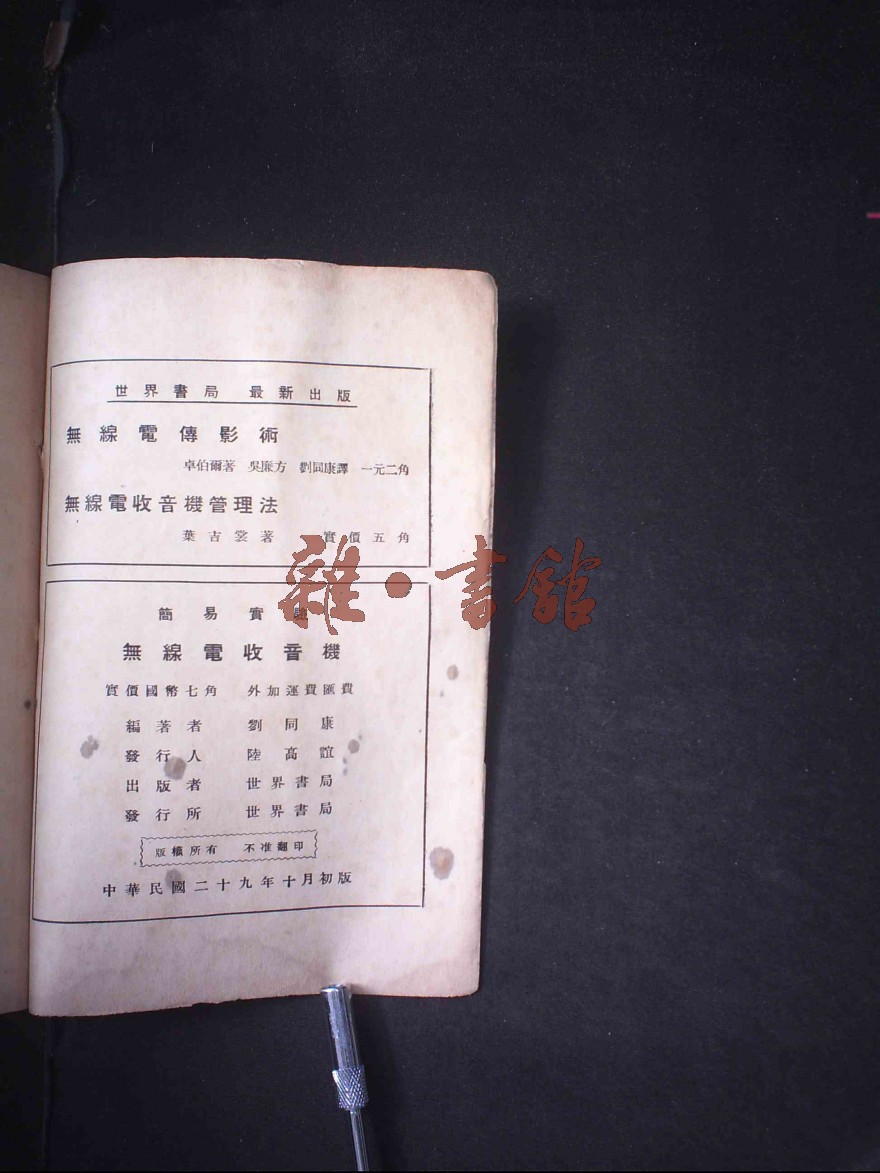 世界書局 最新出版
無線電傳影術
卓伯爾著 吳廉方 劉同康譯 一元二角
無線電收音機管理法
葉吉裳著 實價五角
雜·書館
簡易實驗
無線電收音機
實價國幣七角 外加運費匯費
編著者 劉同康
發行人 陸高誼
出版者 世界書局
發行所 世界書局
版權所有 不准翻印
中華民國二十九年十月初版